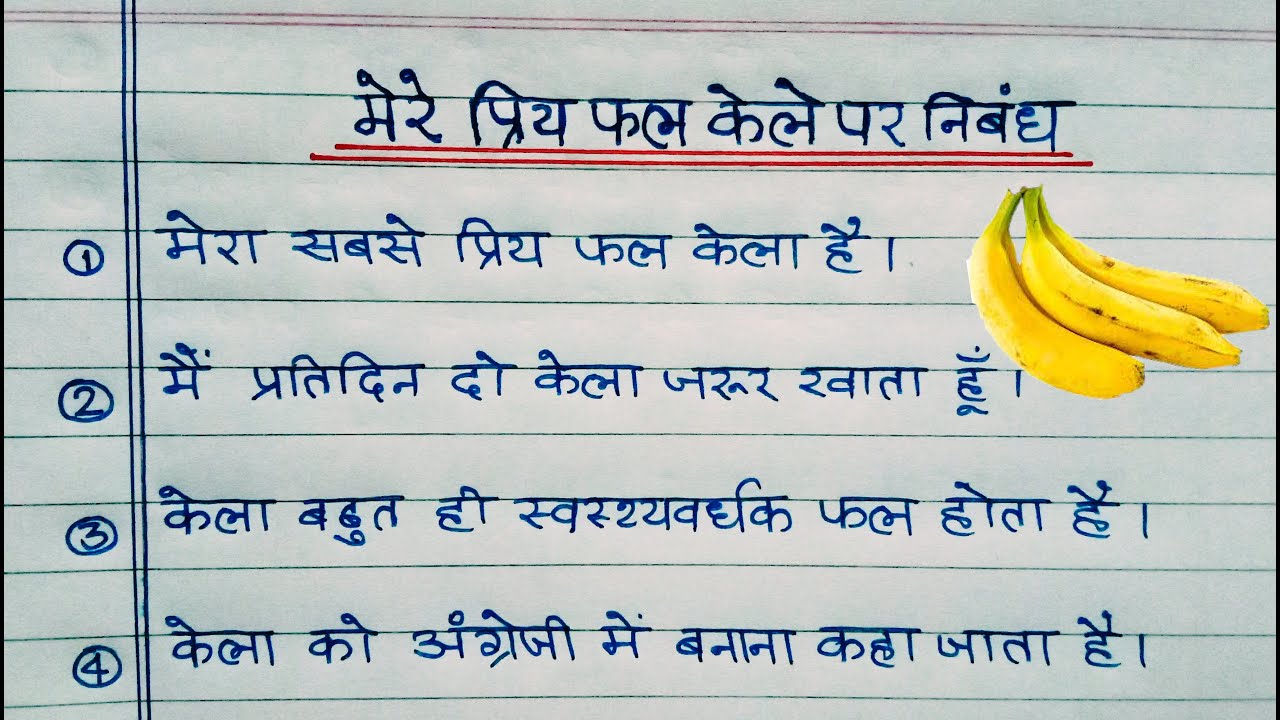 मेरे प्रिय फल केले पर निबंध
① मेरा सबसे प्रिय फल केला है।
② मैं प्रतिदिन दो केला जरूर खाता हूँ।
③ केला बहुत ही स्वस्थ्यवर्धक फल होता है।
④ केला को अंग्रेजी में बनाना कहा जाता है।